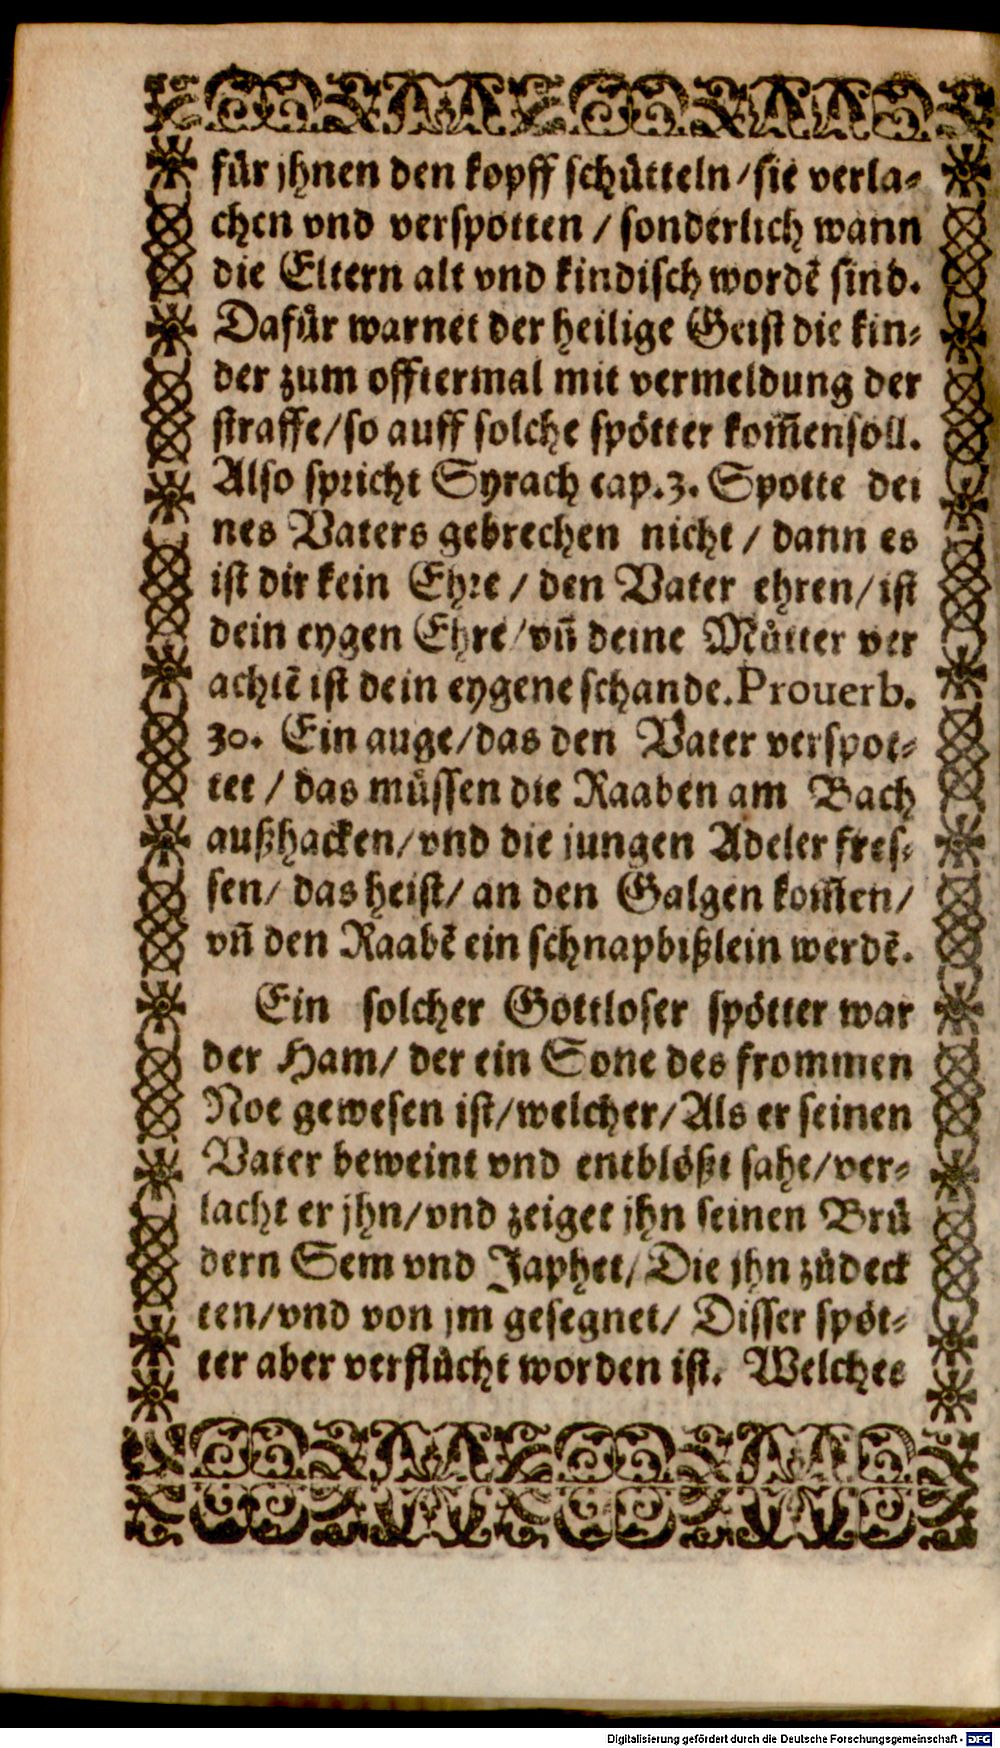 für jhnen den kopff schütteln/sie verla-
chen vnd verspotten / sonderlich wann
die Eltern alt vnd kindisch wordẽ sind.
Dafür warnet der heilige Geist die kin-
der zum offtermal mit vermeldung der
straffe/so auff solche spötter kom̃ensoll.
Also spricht Syrach cap.3. Spotte dei
nes Vaters gebrechen nicht / dann es
ist dir kein Ehre / den Vater ehren/ist
dein eygen Ehre/vñ deine Mütter ver
achtẽ ist dein eygene schande.Prouerb.
30. Ein auge/das den Vater verspot-
tet / das müssen die Raaben am Bach
außhacken/vnd die jungen Adeler fres-
sen/ das heist/ an den Galgen kom̃en/
vñ den Raabẽ ein schnapbißlein werdẽ.
Ein solcher Gottloser spötter war
der Ham/ der ein Sone des frommen
Noe gewesen ist/welcher/Als er seinen
Vater beweint vnd entblößt sahe/ver-
lacht er jhn/vnd zeiget jhn seinen Brü
dern Sem vnd Japhet/Die jhn zůdeck
ten/vnd von jm gesegnet/ Disser spöt-
ter aber verflůcht worden ist. Welches
Digitalisierung gefördert durch die Deutsche Forschungsgemeinschaft - DFG